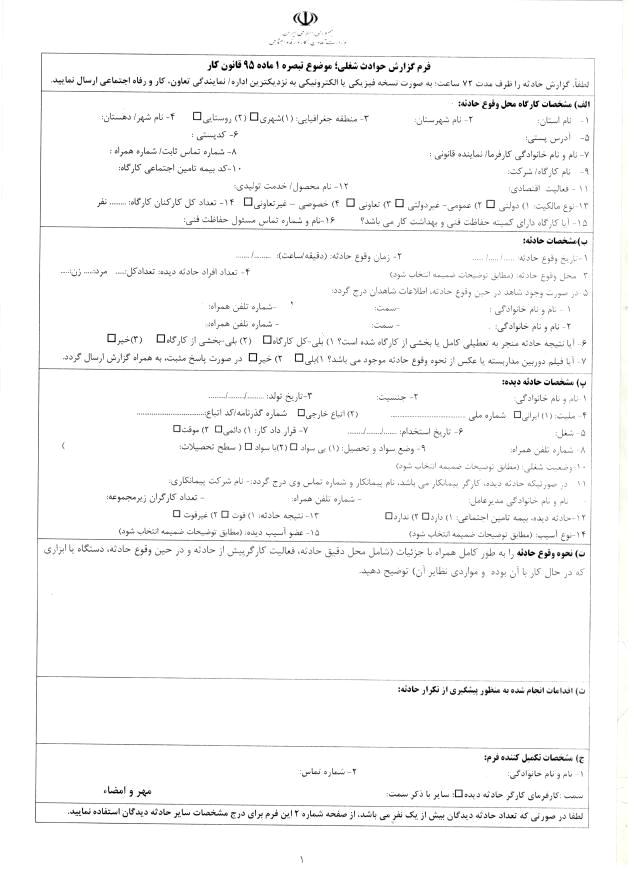 جمهوری اسلامی ایران
وزارت تعاون، کار و رفاه اجتماعی
فرم گزارش حوادث شغلی؛ موضوع تبصره ۱ ماده ۹۵ قانون کار
لطفاً، گزارش حادثه را ظرف مدت ۷۲ ساعت؛ به صورت نسخه فیزیکی یا الکترونیکی به نزدیکترین اداره/ نمایندگی تعاون، کار و رفاه اجتماعی ارسال نمایید.
الف) مشخصات کارگاه محل وقوع حادثه:
۱- نام استان: ۲- نام شهرستان: ۳- منطقه جغرافیایی: ۱)شهری☐ ۲) روستایی☐ ۴- نام شهر/ دهستان:
۵- آدرس پستی: ۶- کدپستی:
۷- نام و نام خانوادگی کارفرما/ نماینده قانونی : ۸- شماره تماس ثابت/ شماره همراه :
۹- نام کارگاه/ شرکت: ۱۰-کد بیمه تامین اجتماعی کارگاه:
۱۱- فعالیت اقتصادی: ۱۲- نام محصول/ خدمت تولیدی:
۱۳-نوع مالکیت: ۱) دولتی ☐ ۲) عمومی- غیردولتی ☐ ۳) تعاونی ☐ ۴) خصوصی – غیرتعاونی☐ ۱۴- تعداد کل کارکنان کارگاه: ........ نفر
۱۵- آیا کارگاه دارای کمیته حفاظت فنی و بهداشت کار می باشد؟ ۱۶-نام و شماره تماس مسئول حفاظت فنی:
ب)مشخصات حادثه:
۱-تاریخ وقوع حادثه: ...../...../..... ۲- زمان وقوع حادثه: (دقیقه/ساعت): ......../......
۳ محل وقوع حادثه: (مطابق توضیحات ضمیمه انتخاب شود) ۴- تعداد افراد حادثه دیده: تعدادکل:..... مرد:..... زن:.....
۵-در صورت وجود شاهد در حین وقوع حادثه، اطلاعات شاهدان درج گردد:
۱ - نام و نام خانوادگی : -سمت: -شماره تلفن همراه:
۲- نام و نام خانوادگی: - سمت: - شماره تلفن همراه:
۶- آیا نتیجه حادثه منجر به تعطیلی کامل یا بخشی از کارگاه شده است؟ ۱) بلی-کل کارگاه☐ ۲) بلی-بخشی از کارگاه☐ ۳)خیر☐
۷- آیا فیلم دوربین مداربسته یا عکس از نحوه وقوع حادثه موجود می باشد؟ ۱)بلی☐ ۲) خیر☐ در صورت پاسخ مثبت، به همراه گزارش ارسال گردد.
پ) مشخصات حادثه دیده:
۱ نام و نام خانوادگی: ۲- جنسیت: ۳-تاریخ تولد: ......../......../........
۴- ملیت: ۱) ایرانی☐ شماره ملی ........................ ۲) اتباع خارجی☐ شماره گذرنامه/کد اتباع........................
۵- شغل: ۶- تاریخ استخدام: ......../......../........ ۷- قرار داد کار: ۱) دائمی☐ ۲) موقت☐
۸- شماره تلفن همراه: ۹- وضع سواد و تحصیل: ۱) بی سواد ☐ ۲)با سواد ☐ ( سطح تحصیلات: )
۱۰-وضعیت شغلی: (مطابق توضیحات ضمیمه انتخاب شود)
۱۱ در صورتیکه حادثه دیده، کارگر پیمانکار می باشد، نام پیمانکار و شماره تماس وی درج گردد:- نام شرکت پیمانکاری:
نام و نام خانوادگی مدیرعامل: - شماره تلفن همراه: - تعداد کارگران زیرمجموعه:
۱۲-حادثه دیده، بیمه تامین اجتماعی: ۱) دارد☐ ۲) ندارد☐ ۱۳- نتیجه حادثه: ۱) فوت ☐ ۲) غیرفوت ☐
۱۴-نوع آسیب: (مطابق توضیحات ضمیمه انتخاب شود) ۱۵-عضو آسیب دیده: (مطابق توضیحات ضمیمه انتخاب شود)
ت) نحوه وقوع حادثه را به طور کامل همراه با جزئیات (شامل محل دقیق حادثه، فعالیت کارگر پیش از حادثه و در حین وقوع حادثه، دستگاه یا ابزاری
که در حال کار با آن بوده و مواردی نظایر آن) توضیح دهید.
ث) اقدامات انجام شده به منظور پیشگیری از تکرار حادثه:
ج) مشخصات تکمیل کننده فرم:
۱- نام و نام خانوادگی: ۲- شماره تماس:
سمت :کارفرمای کارگر حادثه دیده☐؛ سایر با ذکر سمت: مهر و امضاء
لطفا در صورتی که تعداد حادثه دیدگان بیش از یک نفر می باشد، از صفحه شماره ۲ این فرم برای درج مشخصات سایر حادثه دیدگان استفاده نمایید.
۱